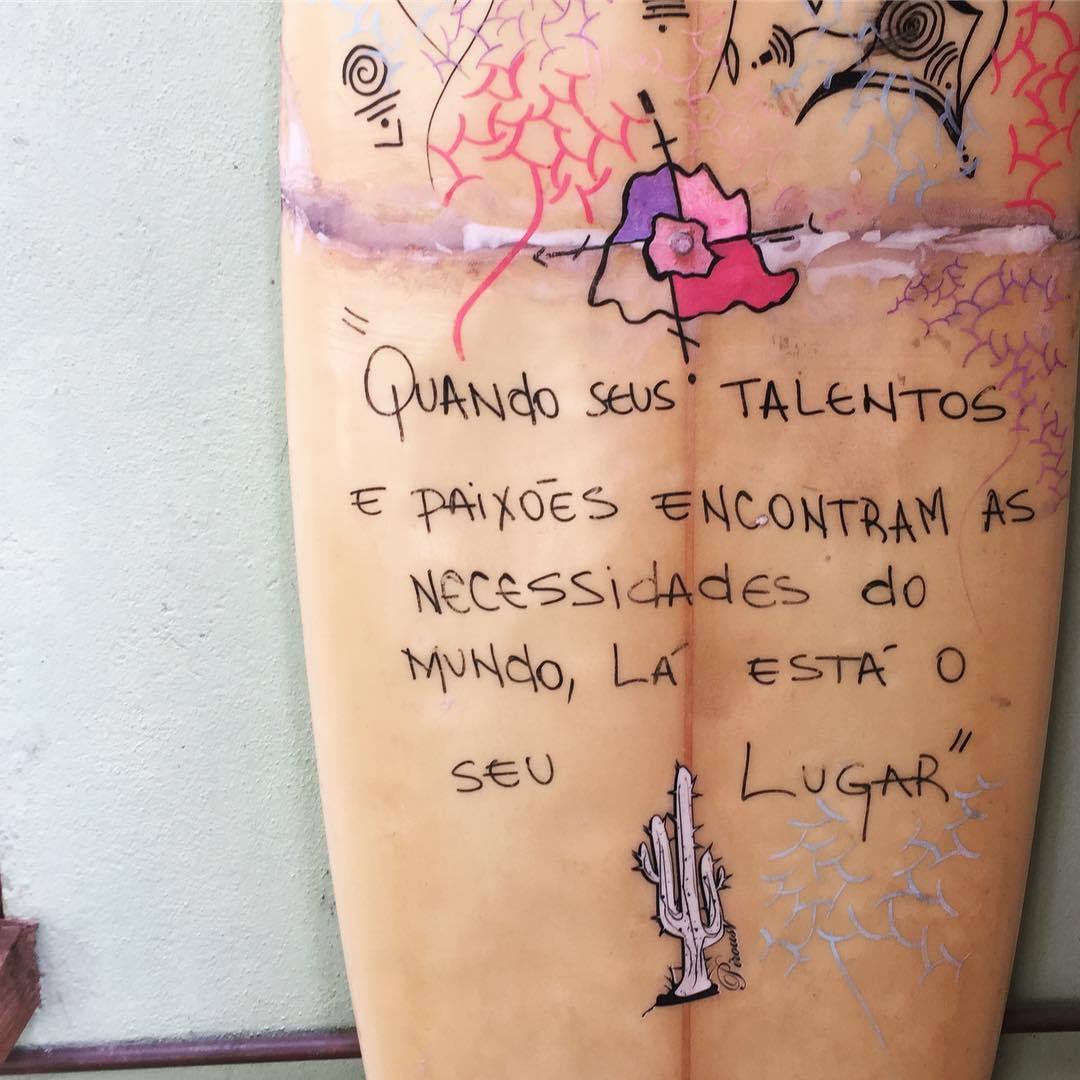 "QUANdO SEUS TALENTOS
E PAIXÕES ENCONTRAM AS
NECESSIdAdES dO
MUNdO, LÁ ESTÁ O
SEU LUGAR"